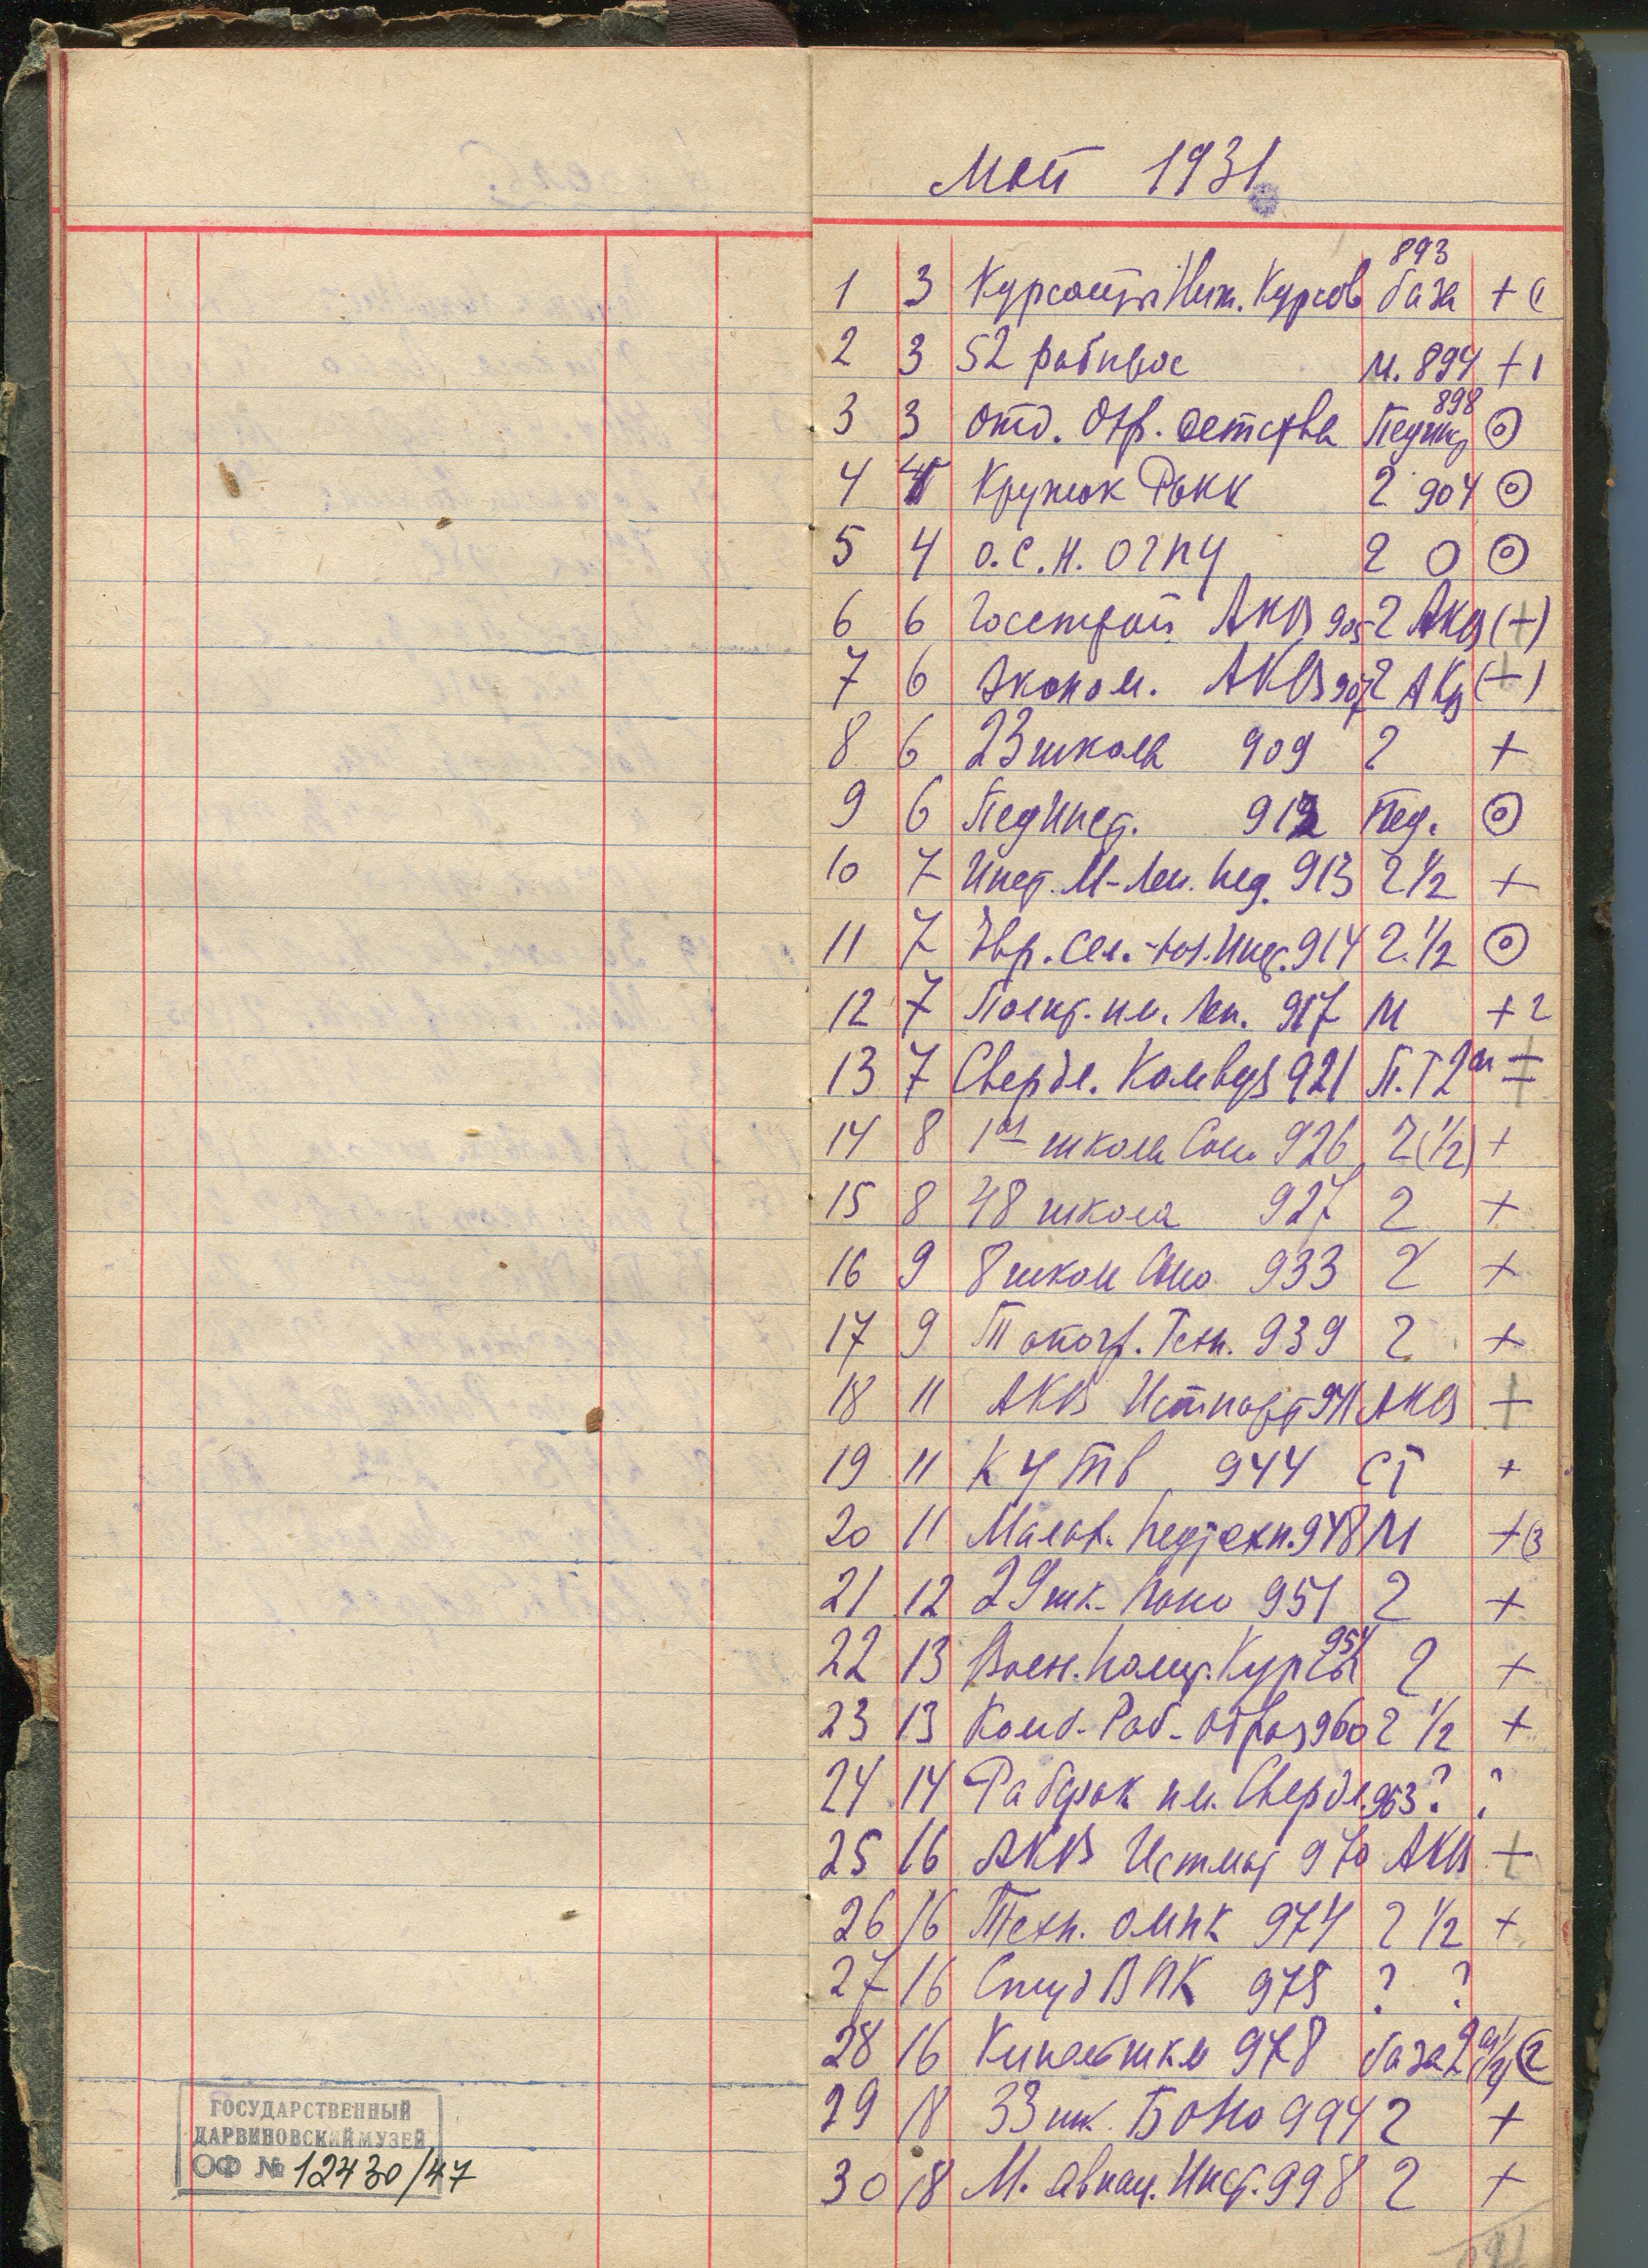 Май 1931
893
1 3 Курсанты Инж. Курсов база + (1
2 3 52 рабпрос М. 894 + 1
898
3 3 Отд. Охр. детства Пединс
4 4 Кружок 2 904
5 4 О.С.Н. ОГПУ 2 0
6 6 Госстрой АКВ 905 2 АКВ (+)
7 6 Эконом. АКВ 907 2 АКВ (+)
8 6 23 школа 909 2 +
9 6 ПедИнст. 912 Пед.
10 7 Инст. М-Лен. пед. 913 2 1/2 +
11 7 Евр. Сел.-хоз. Инс. 914 2 1/2
12 7 им. Лен. 917 М + 2
13 7 Свердл. Комвуз 921 П.Т 2
14 8 1ая школа Соно 926 2 (1/2) +
15 8 48 школа 927 2 +
16 9 8 школ Соно 933 2 +
17 9 Топогр. Техн. 939 2 +
18 11 АКВ Истпарт 941 АКВ +
19 11 КУТВ 944 СТ +
20 11 педтехн. 948 М + (3
21 12 29 шк. 951 2 +
954
22 13 Воен. Полит. Курсы 2 +
23 13 Комб. Раб. Образ 960 2 1/2 +
24 14 Рабфак им. Свердл. 963 ? ?
25 16 АКВ Истмат 970 АКВ +
26 16 Техн. ОМПК 974 2 1/2 +
27 16 Студ ВПК 975 ? ?
28 16 978 база 2
29 18 33 шк. БОНО 994 2 +
30 18 М. авиац. Инст. 998 2 +
ГОСУДАРСТВЕННЫЙ
ДАРВИНОВСКИЙ МУЗЕЙ
ОФ № 12430/47